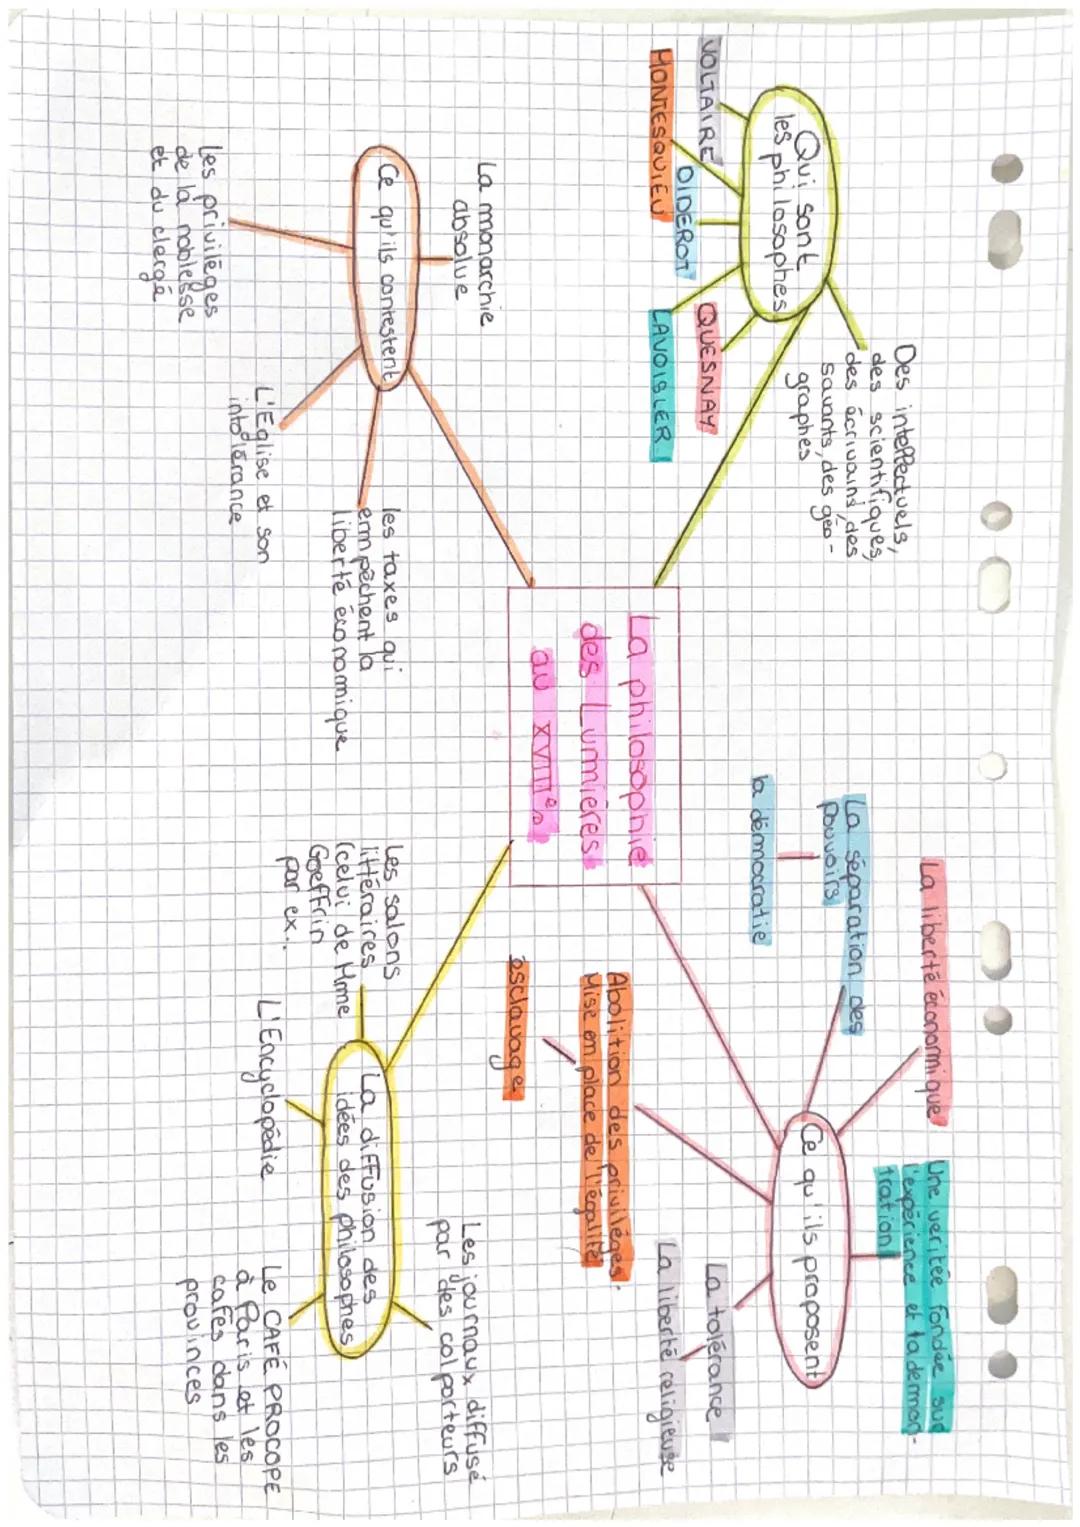 La philosophie
des Lumières
au XVIIIe s
Qui sont
les philosophes
VOLTAIRE
MONTESQUIEU
DIDEROT
QUESNAY
LAVOISLER
Des intellectuels,
des scientifiques,
des écrivains, des
savants, des géo-
graphes
Ce qu'ils proposent
La liberté économique
La séparation des
pouvoirs
la démocratie
Une veritée fondée sur
l'expérience et la démon-
tration
La tolérance
La liberté religieuse
Abolition des privilèges.
Mise en place de l'égalité
esclavage
Ce qu'ils contestent
La monarchie
absolue
Les privilèges
de la noblesse
et du clergé
L'Eglise et son
intolérance
les taxes qui
empêchent la
liberté économique
La diffusion des
idées des philosophes
Les salons
littéraires
(celui de Mme
Goeffrin
par ex..
L'Encyclopédie
Les journaux diffusé
par des colporteurs
Le CAFÉ PROCOPE
à Paris et les
cafés dans les
provinces